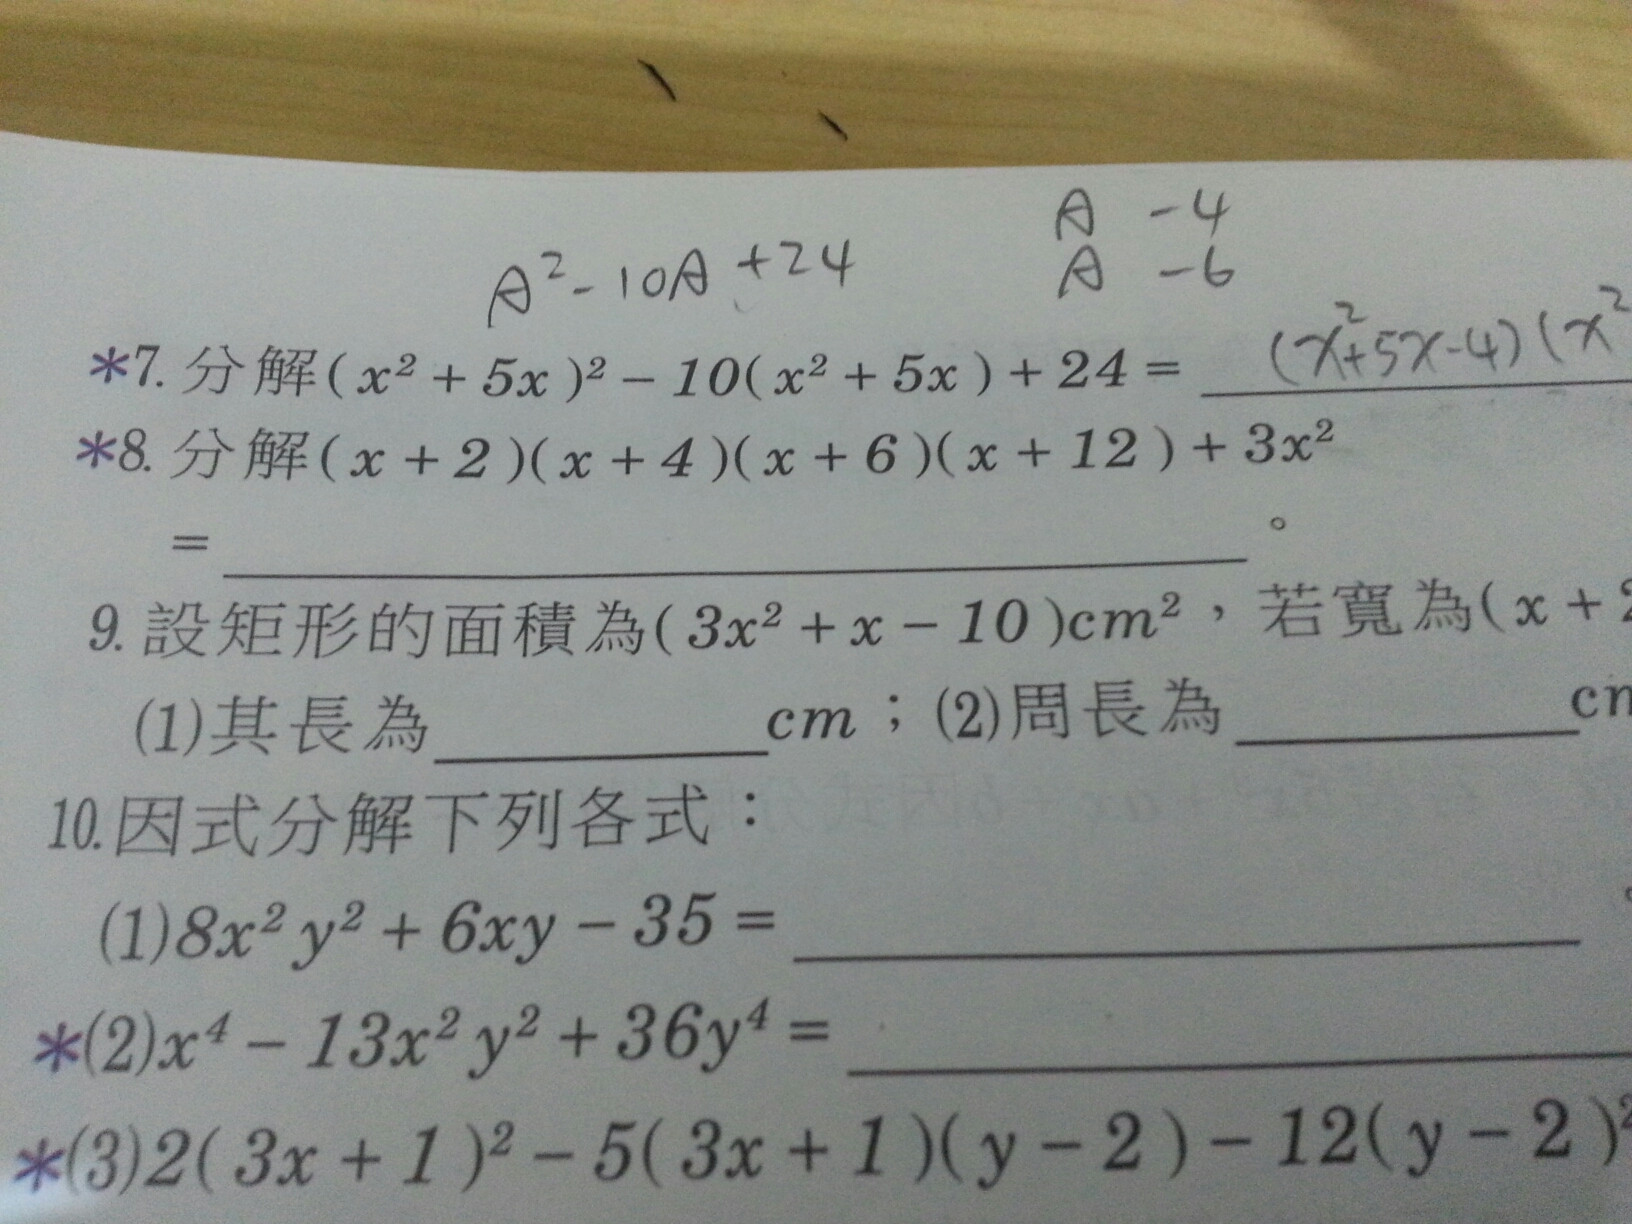 A -4
A²-10A+24 A -6
*7. 分解(x²+5x)²-10(x²+5x)+24= (x²+5x-4)(x²
*8. 分解(x+2)(x+4)(x+6)(x+12)+3x²
= 。
9. 設矩形的面積為(3x²+x-10)cm²，若寬為(x+2
(1)其長為 cm；(2)周長為 cm
10.因式分解下列各式：
(1)8x²y²+6xy-35= 。
*(2)x⁴-13x²y²+36y⁴=
*(3)2(3x+1)²-5(3x+1)(y-2)-12(y-2)²